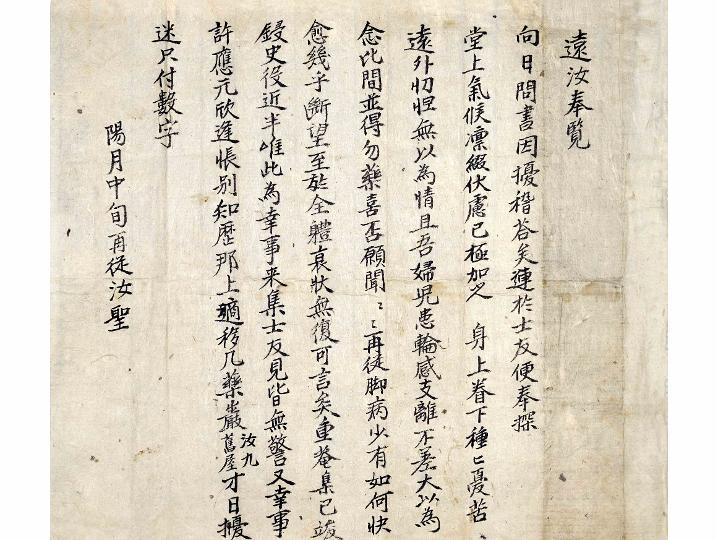 遠汝奉覧
向日問書因擾稽答矣連於士友便奉探
堂上氣候凛綴伏慮已極加之 身上眷下種〻憂苦
遠外忉怛無以為情且吾婦児患輪感支離不差大以為
念比間並得勿藥喜否願聞〻〻再従脚病少有如何快
愈幾乎斷望至於全體衰状無復可言矣重菴集已竣
鋟史役近半唯此為幸事来集士友見皆無警又幸事
許應元欣逢悵別知歴那上適移几藥巌汝九舊屋才日擾
迷只付數字
陽月中旬再従汝聖